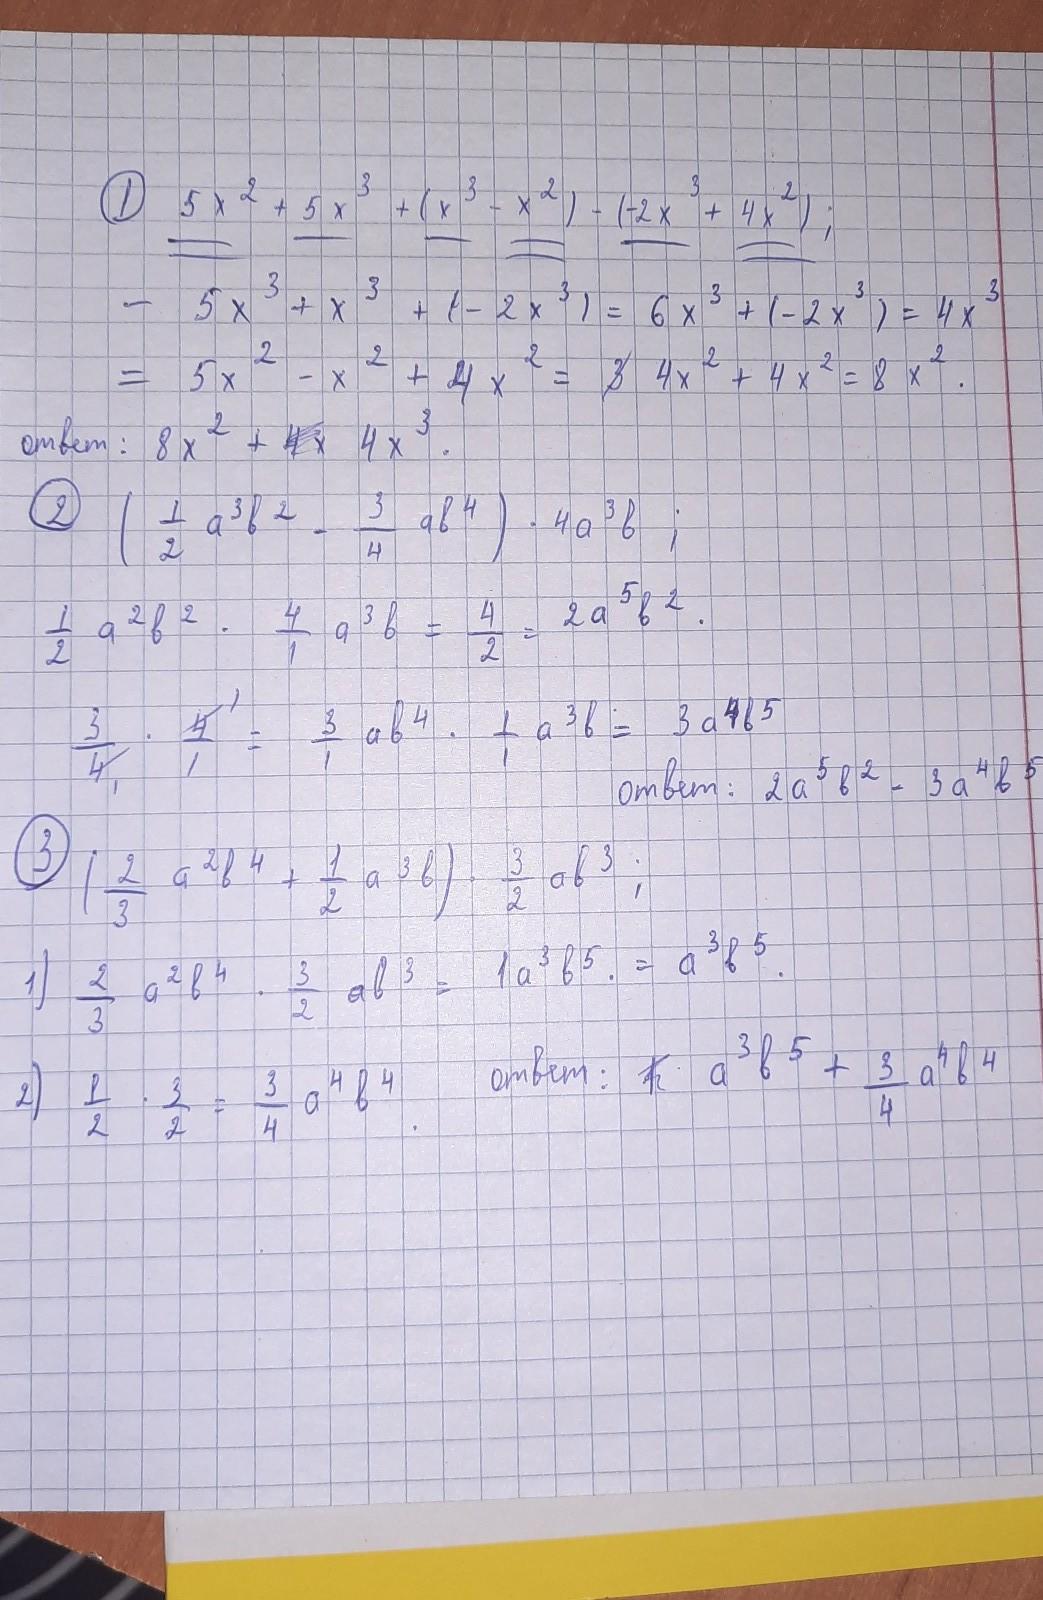 ① 5x² + 5x³ + (x³ - x²) - (-2x³ + 4x²);
- 5x³ + x³ + (-2x³) = 6x³ + (-2x³) = 4x³
= 5x² - x² + 4x² = 4x² + 4x² = 8x².
ответ: 8x² + 4x³.
② (1/2 a³b² - 3/4 ab⁴) · 4a³b;
1/2 a²b² · 4/1 a³b = 4/2 = 2a⁵b².
3/4 · 4/1 = 3/1 ab⁴ · 1/1 a³b = 3a⁴b⁵
ответ: 2a⁵b² - 3a⁴b⁵
③ (2/3 a²b⁴ + 1/2 a³b) · 3/2 ab³;
1) 2/3 a²b⁴ · 3/2 ab³ = 1a³b⁵. = a³b⁵.
2) 1/2 · 3/2 = 3/4 a⁴b⁴. ответ: a³b⁵ + 3/4 a⁴b⁴